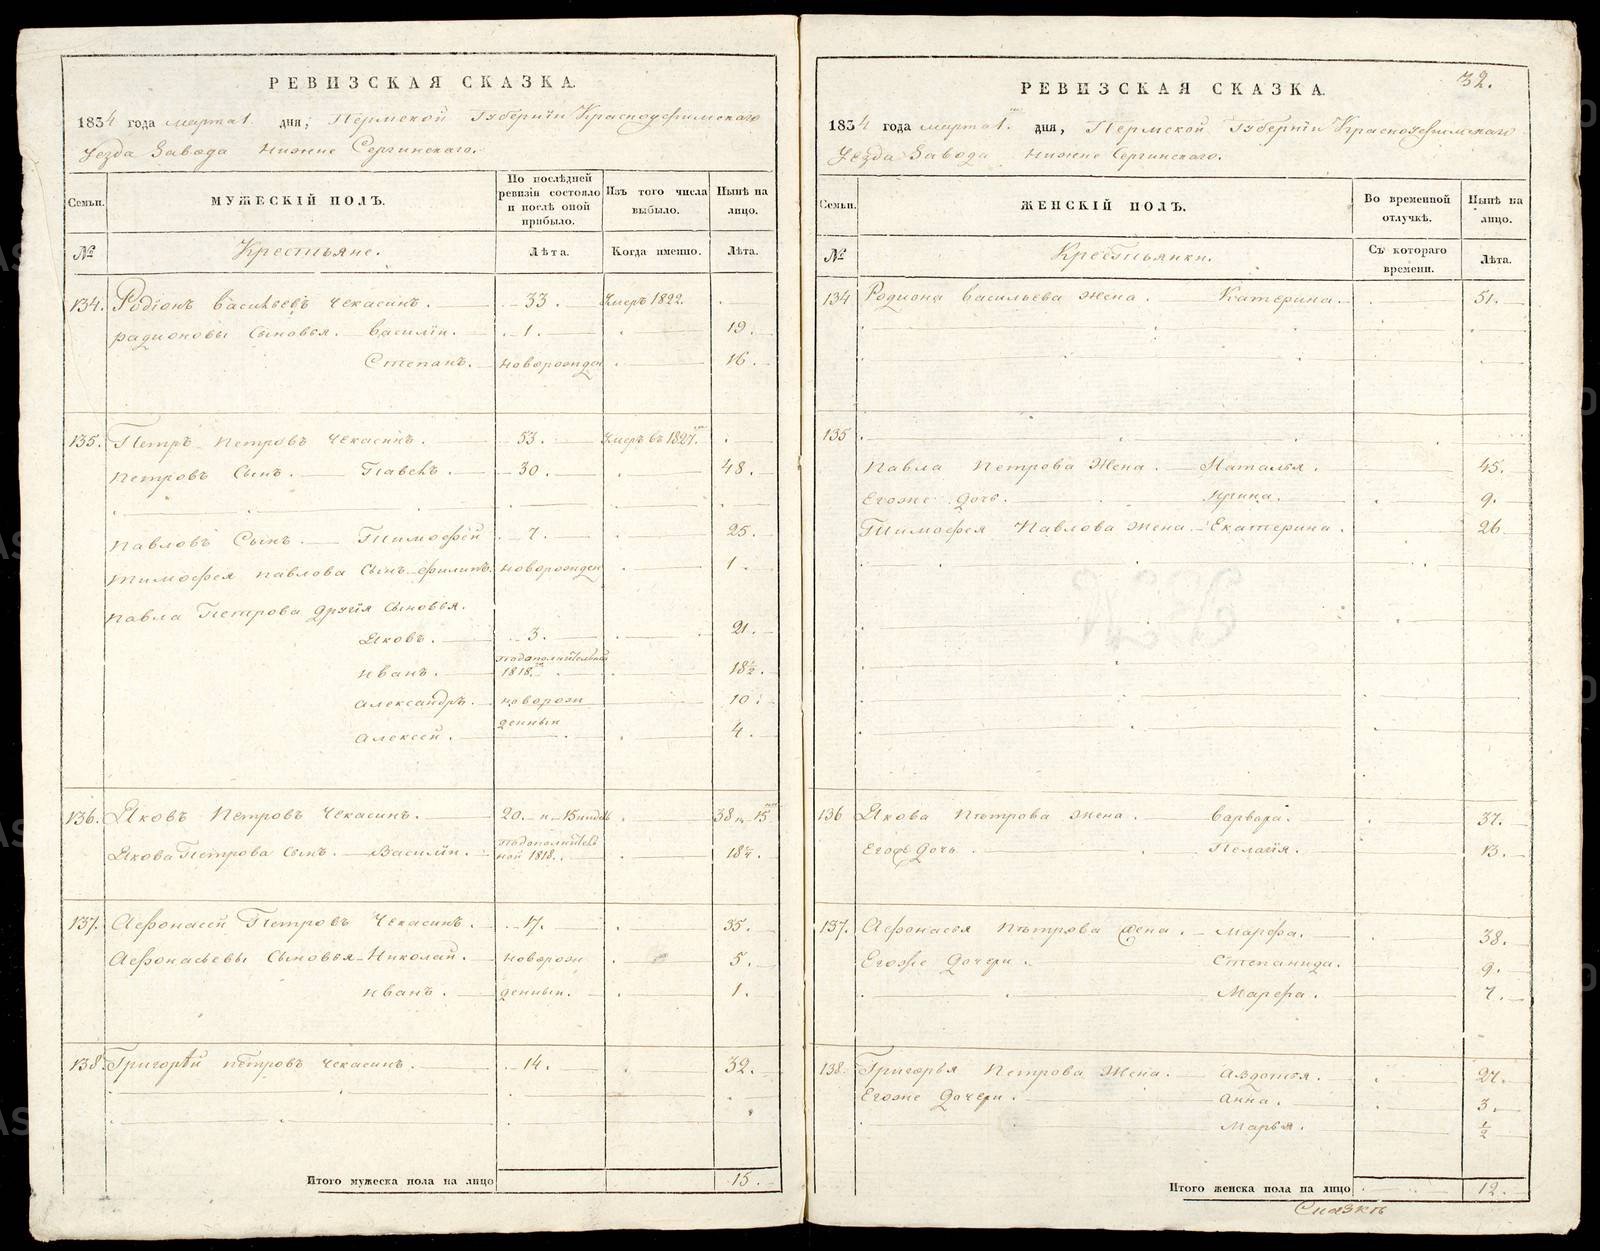 РЕВИЗСКАЯ СКАЗКА.
1834 года марта 1. дня, Пермской Губернїи Красноуфимскаго
Уезда Завода Нижне Сергинскаго.
Семьи.
МУЖЕСКІЙ ПОЛЪ.
По послѣдней ревизіи состояло и послѣ оной прибыло.
Изъ того числа выбыло.
Нынѣ на лицо.
№
Крестьяне.
Лѣта.
Когда именно.
Лѣта.
134. Родїонъ Васильевъ Чекасинъ. 33. Умеръ 1822.
радионовы Сыновья. Василїи. 1. 19.
Степанъ. новорожден 16.
135. Петръ Петровъ Чекасинъ. 53. Умеръ въ 1827.
Петровъ Сынъ. Павелъ. 30. 48.
Павловъ Сынъ. Тимофѣй 7. 25.
тимофея павлова Сынъ филипъ. новорожден 1.
Павла Петрова другїя Сыновья.
Яковъ. 3. 21.
Иванъ. 1818. 18½.
Александръ. новорож 10.
денныи
Алексей. 4.
136. Яковъ Петровъ Чекасинъ. 20. и 15 38 и 15
Якова Петрова Сынъ. Василїи. ной 1818. 18¼.
137. Афонасей Петровъ Чекасинъ. 17. 35.
Афонасьевы Сыновья Николай. новорож 5.
Иванъ. денныи. 1.
138. Григорїй петровъ Чекасинъ. 14. 32.
Итого мужеска пола на лицо 15.
32.
РЕВИЗСКАЯ СКАЗКА.
1834 года марта 1. дня, Пермской Губернїи Красноуфимскаго
Уезда Завода Нижне Сергинскаго.
Семьи.
ЖЕНСКІЙ ПОЛЪ.
Во временной отлучкѣ.
Нынѣ на лицо.
№
Крестьянки.
Съ котораго времени.
Лѣта.
134 Родиона Васильева жена. Катерина. 51.
135
Павла Петрова Жена. Наталья. 45.
Егоже дочь. Ирина. 9.
Тимофея Павлова жена Екатерина. 26
136 Якова Петрова жена. Варвара. 37.
Егоже Дочь. Пелагїя. 13.
137. Афонасья Петрова жена. Марфа. 38.
Егоже Дочери. Степанида. 9.
Марфа. 7.
138. Григорья Петрова Жена. Авдотья. 27.
Егоже Дочери. Анна. 3.
Марья. ½
Итого женска пола на лицо 12.
Сказкѣ